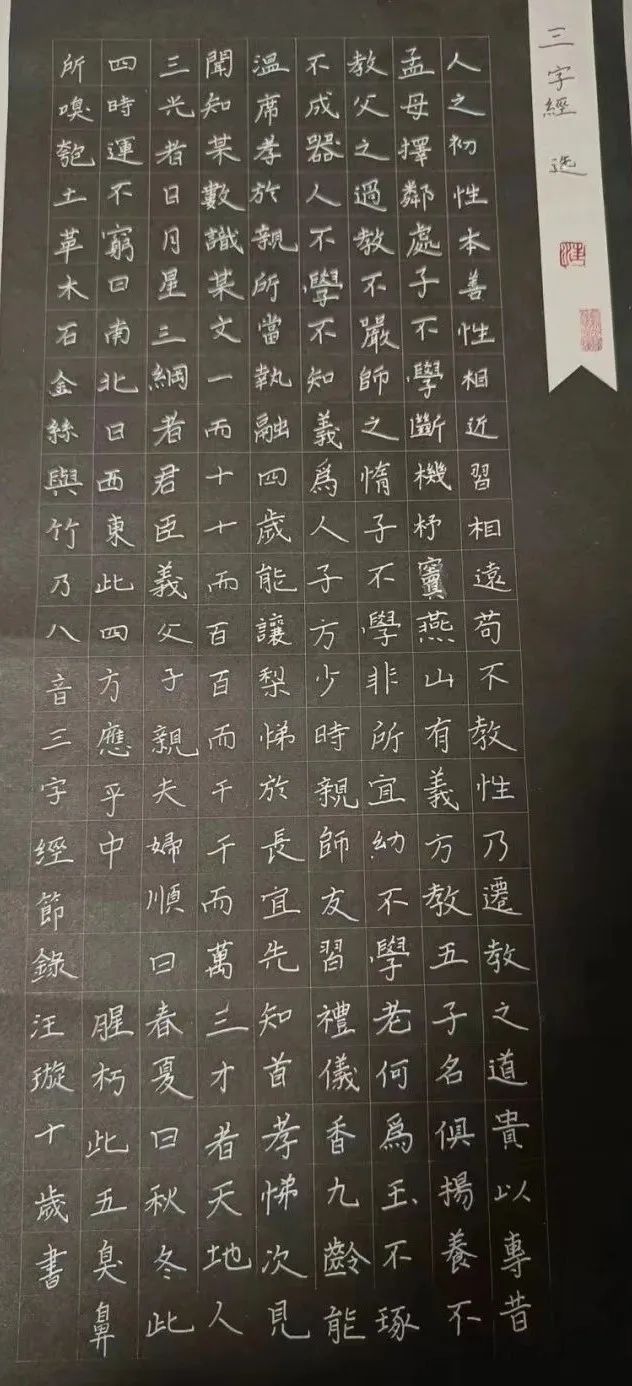 三字經 选
人之初性本善性相近習相遠苟不教性乃遷教之道貴以專昔
孟母擇鄰處子不學斷機杼竇燕山有義方教五子名俱揚養不
教父之過教不嚴師之惰子不學非所宜幼不學老何爲玉不琢
不成器人不學不知義爲人子方少時親師友習禮儀香九齡能
溫席孝於親所當執融四歲能讓梨悌於長宜先知首孝悌次見
聞知某數識某文一而十十而百百而千千而萬三才者天地人
三光者日月星三綱者君臣義父子親夫婦順曰春夏曰秋冬此
四時運不窮曰南北曰西東此四方應乎中 腥朽此五臭鼻
所嗅匏土革木石金絲與竹乃八音三字經節錄汪璇十歲書